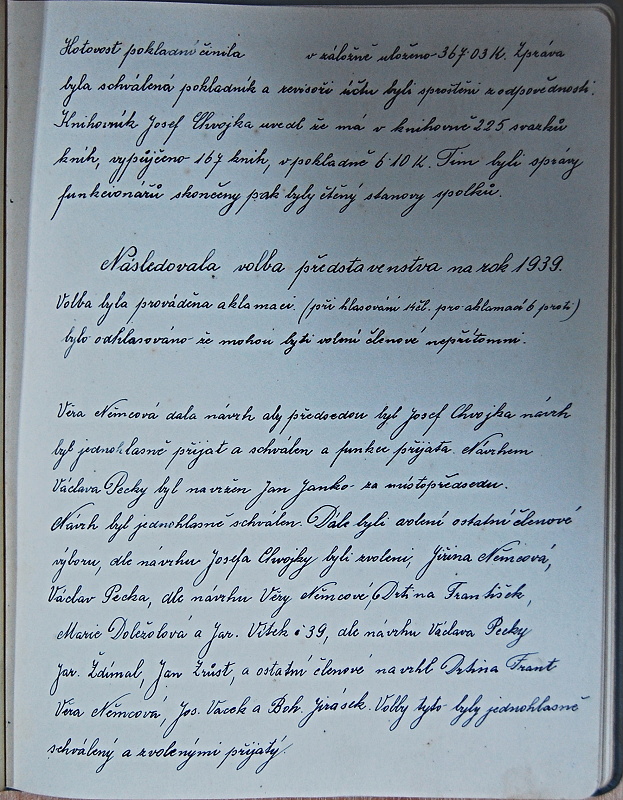 Hotovost pokladní činila v záložně uloženo 367·03 K. Zpráva
byla schválená pokladník a revisoři účtu byli sproštěni z odpovědnosti.
Knihovník Josef Chvojka uvedl že má v knihovně 225 svazků
knih, vypůjčeno 167 knih, v pokladně 6·10 K. Tím byli správy
funkcionářů skončeny pak byly čtěný stanovy spolků.
Následovala volba představenstva na rok 1939.
Volba byla prováděna aklamací. (při hlasování 14čl. pro aklamaci 6 proti)
bylo odhlasováno že mohou býti volení členové nepřítomni.
Věra Němcová dala návrh aby předsedou byl Josef Chvojka návrh
byl jednohlasně přijat a schválen a funkce přijata. Návrhem
Václava Pecky byl navržen Jan Janko za místopředsedu.
Návrh byl jednohlasně schválen. Dále byli zvolení ostatní členové
výboru, dle návrhu Josefa Chvojky byli zvoleni, Jiřina Němcová,
Václav Pecka, dle návrhu Věry Němcové, Drtina František,
Marie Doležolová a Jar. Vítek č 39, dle návrhu Václava Pecky
Jar. Ždímal, Jan Zrůst, a ostatní členové navrhl Drtina Frant
Věra Němcová, Jos. Vacek a Boh. Jirásek. Volby tyto byly jednohlasně
schválený a zvolenými přijatý.